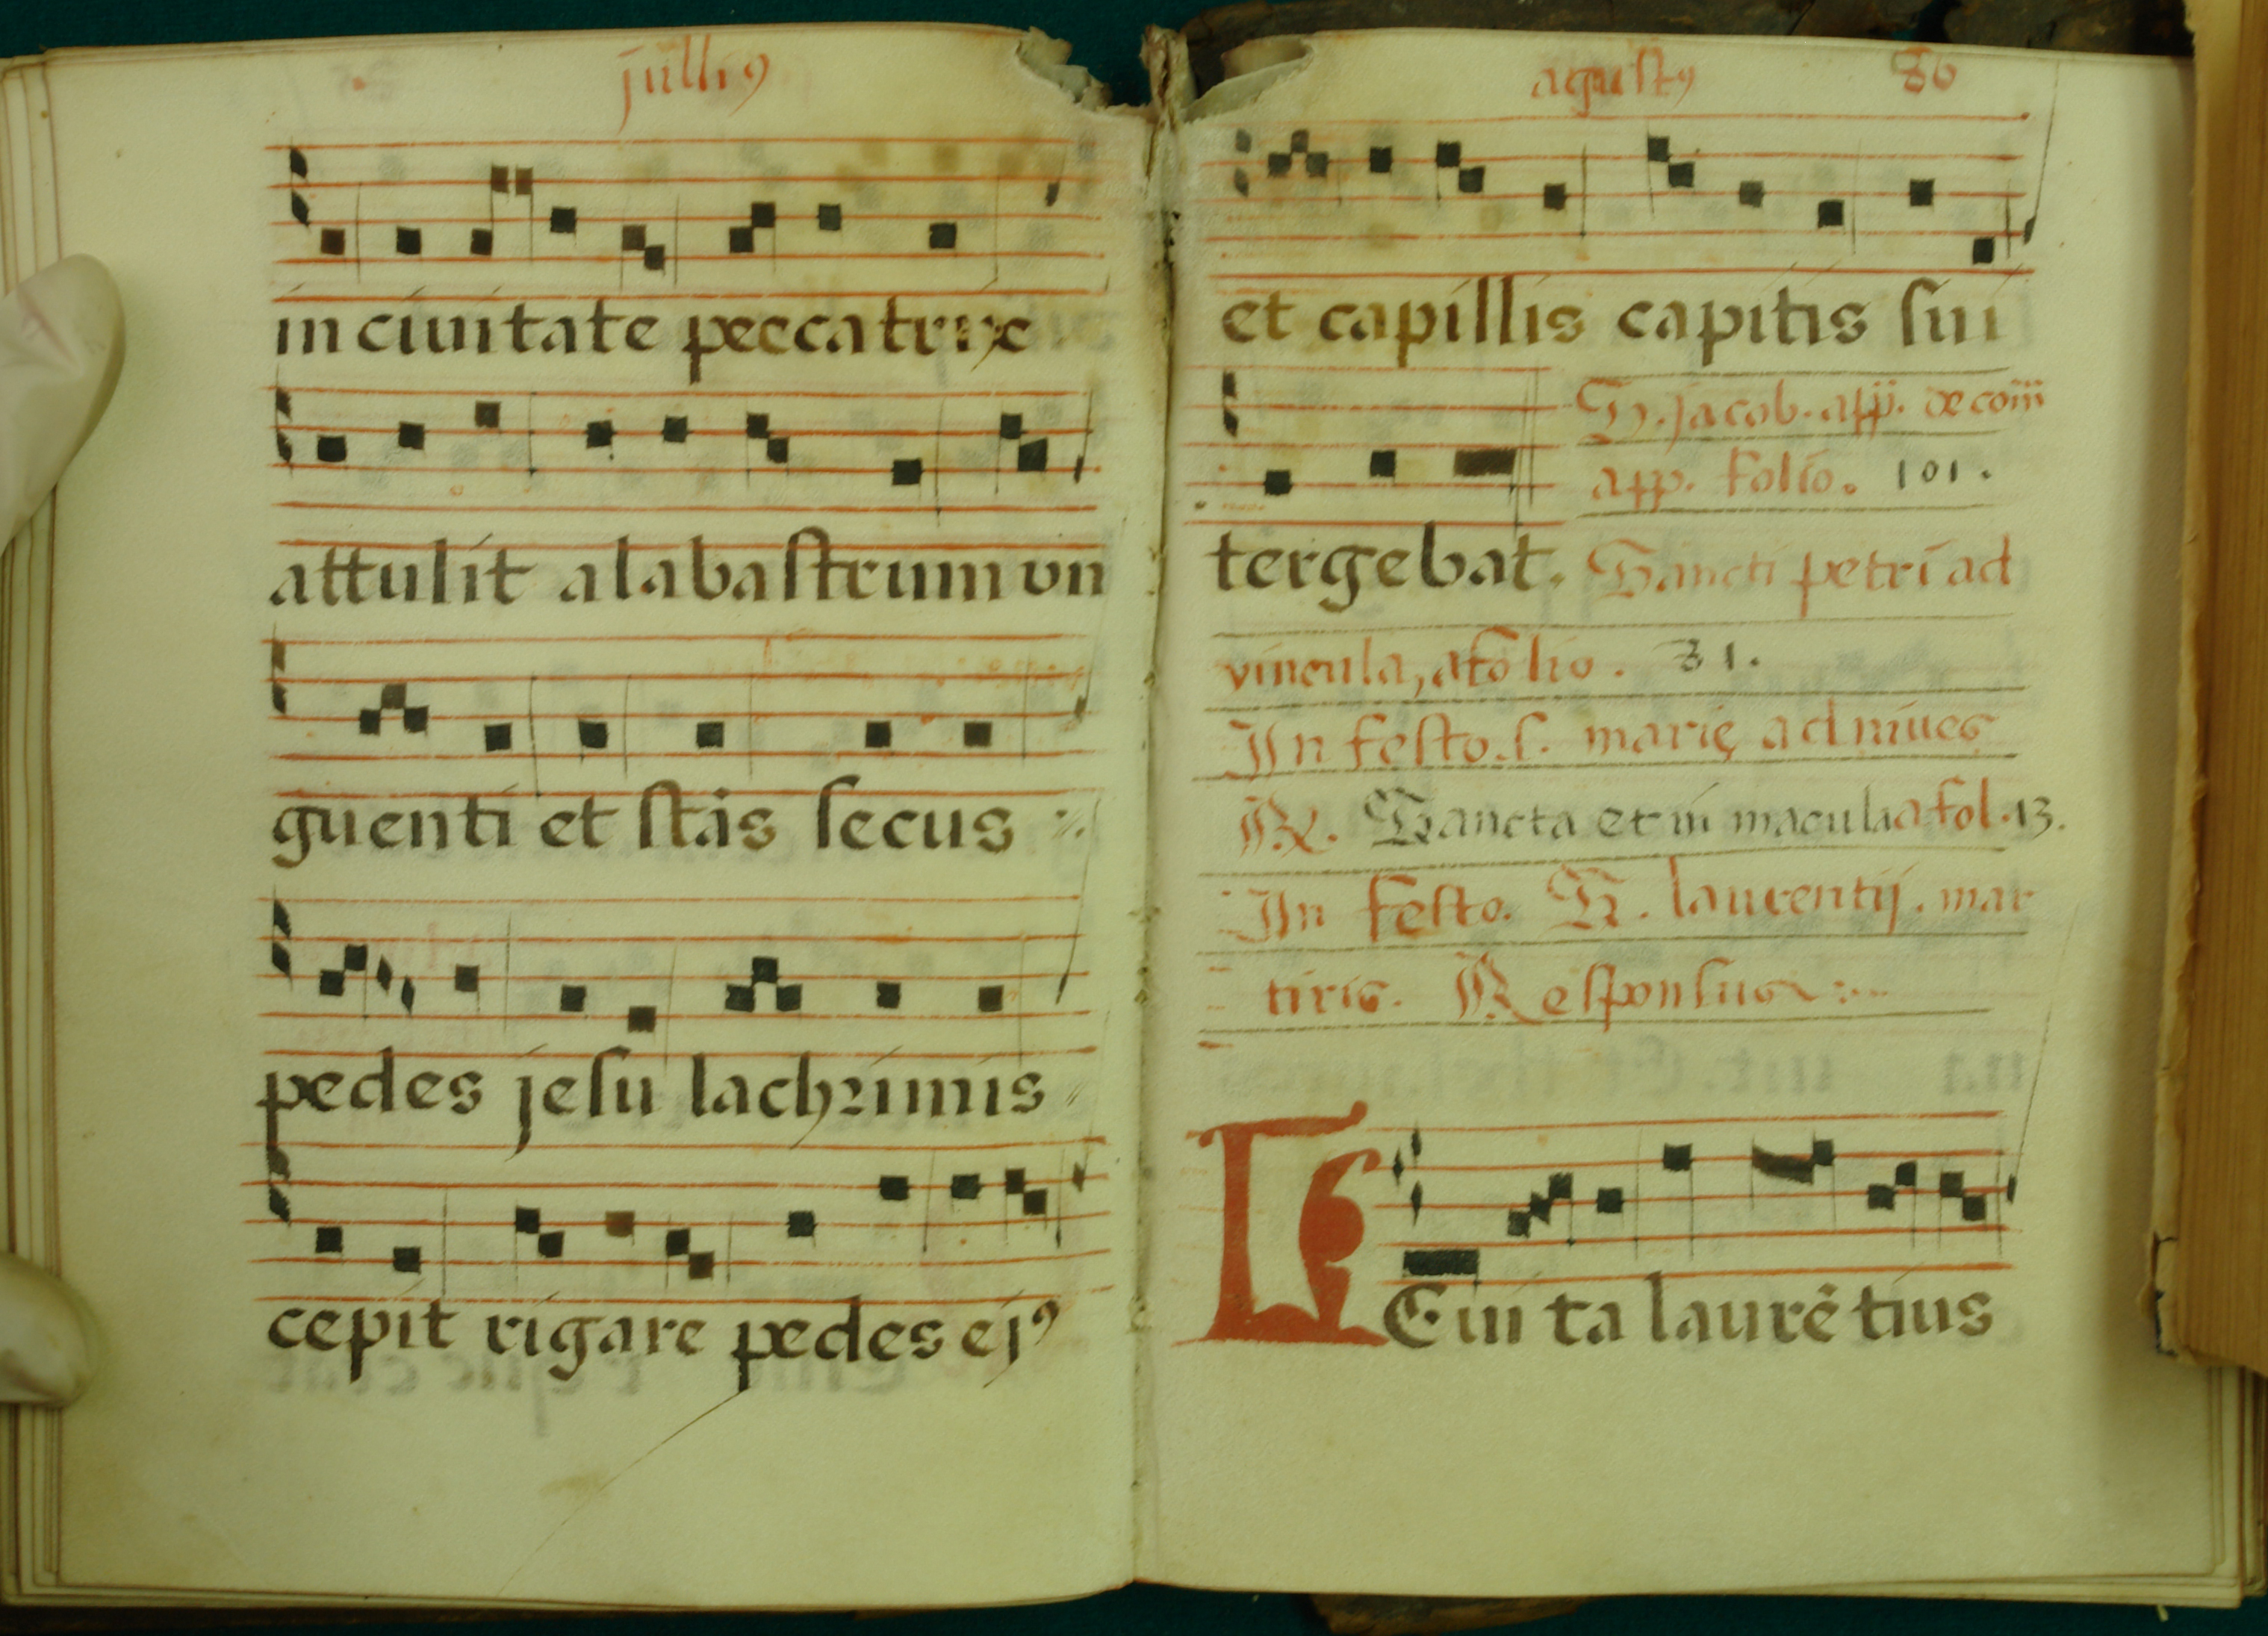 julli⁹
in ciuitate peccatrix
attulit alabastrum vn
guenti et stās secus
pedes jesu lachrimis
cepit rigare pedes ej⁹
agust⁹ 86
et capillis capitis sui
S. jacob. app. de coīī
app. folio. 101.
tergebat. Sancti petri ad
vincula, afolio. 81.
In festo. s. marię ad niues
R. Sancta et in maculata fol. 13.
In festo. S. laurentij. mar
tiris. Responsus
LEui ta laurētius